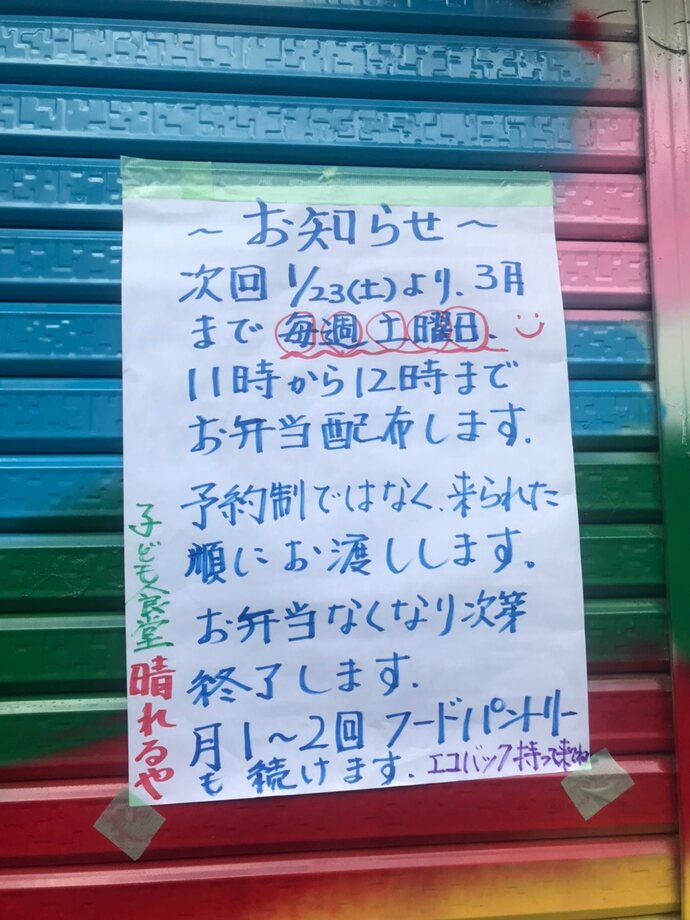 ～お知らせ～
次回 1/23(土)より、3月
まで 毎週土曜日、
11時から12時まで
お弁当配布します.
予約制ではなく、来られた
順にお渡しします。
お弁当なくなり次第
終了します.
月1～2回 フードパントリー
も続けます. エコバック持って来てね
子ども食堂 晴れるや